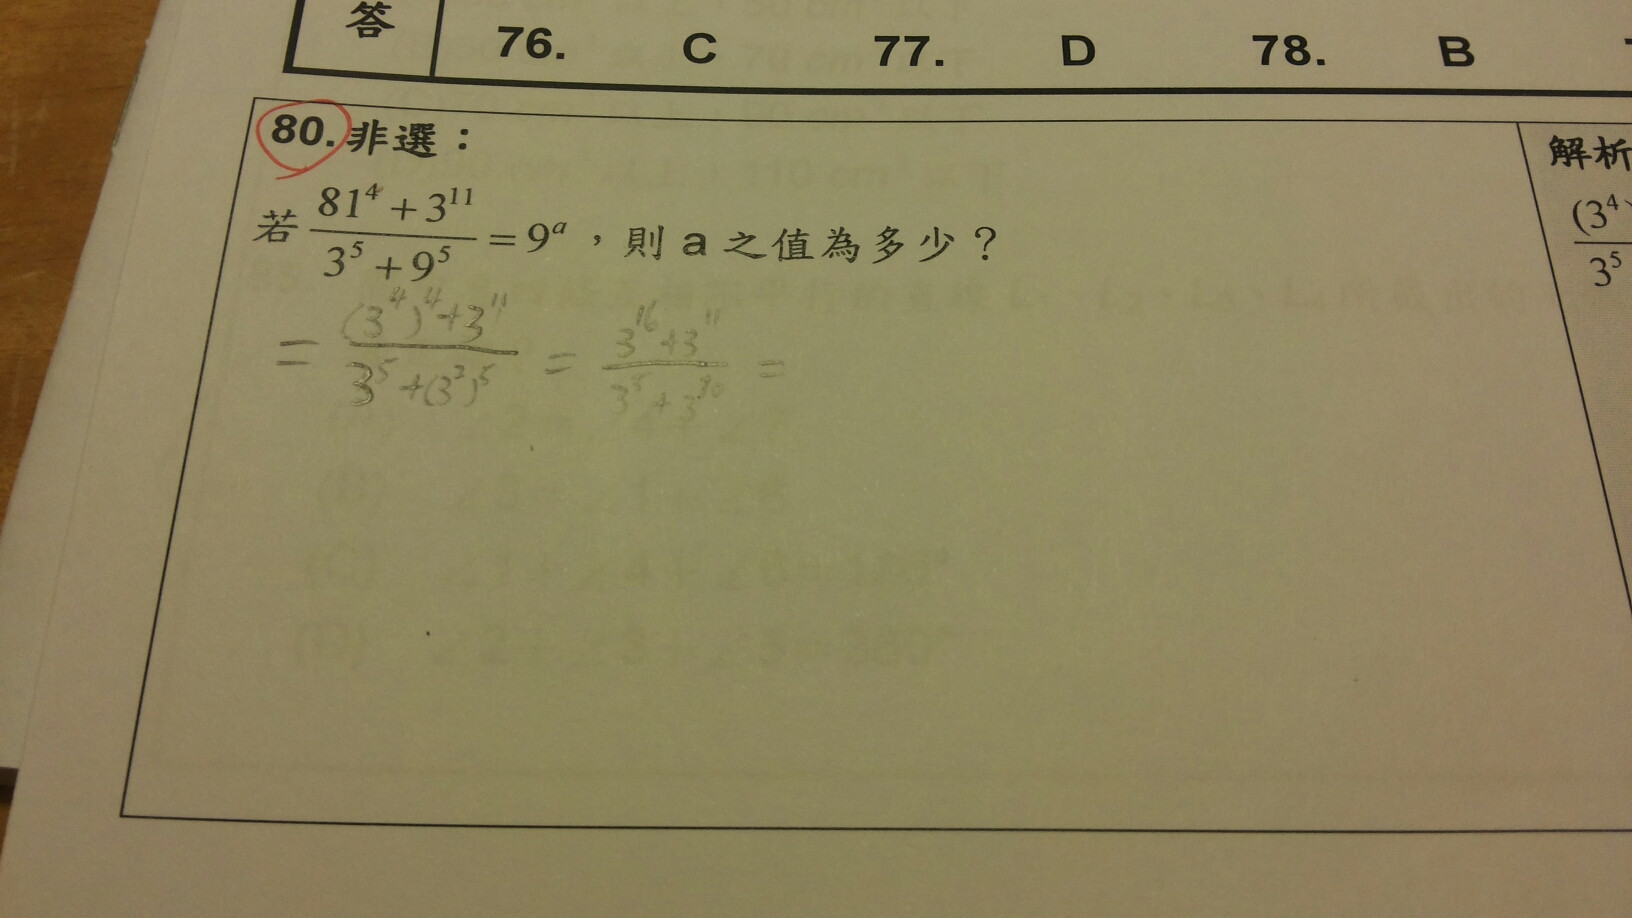 答 76. C 77. D 78. B
80. 非選：
解析
若 \frac{81^4 + 3^{11}}{3^5 + 9^5} = 9^a ，則 a 之值為多少？
(3^4)
3^5
= \frac{(3^4)^4 + 3^{11}}{3^5 + (3^2)^5} = \frac{3^{16} + 3^{11}}{3^5 + 3^{10}} =